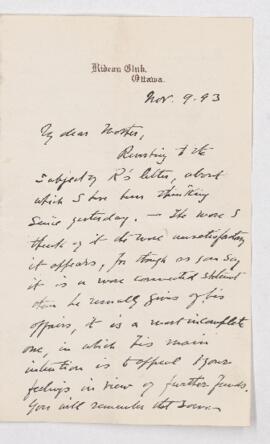 Rideau Club,
Ottawa.
Nov. 9. 93
My dear Mother,
Reverting to the
subject of R's letter, about
which I have been thinking
since yesterday. — The more I
think of it the more unsatisfactory
it appears, for though as you say
it is a more connected statement
than he usually gives of his
affairs, it is a most incomplete
one, in which his main
intention is to appeal to your
feelings in view of further funds.
You will remember that